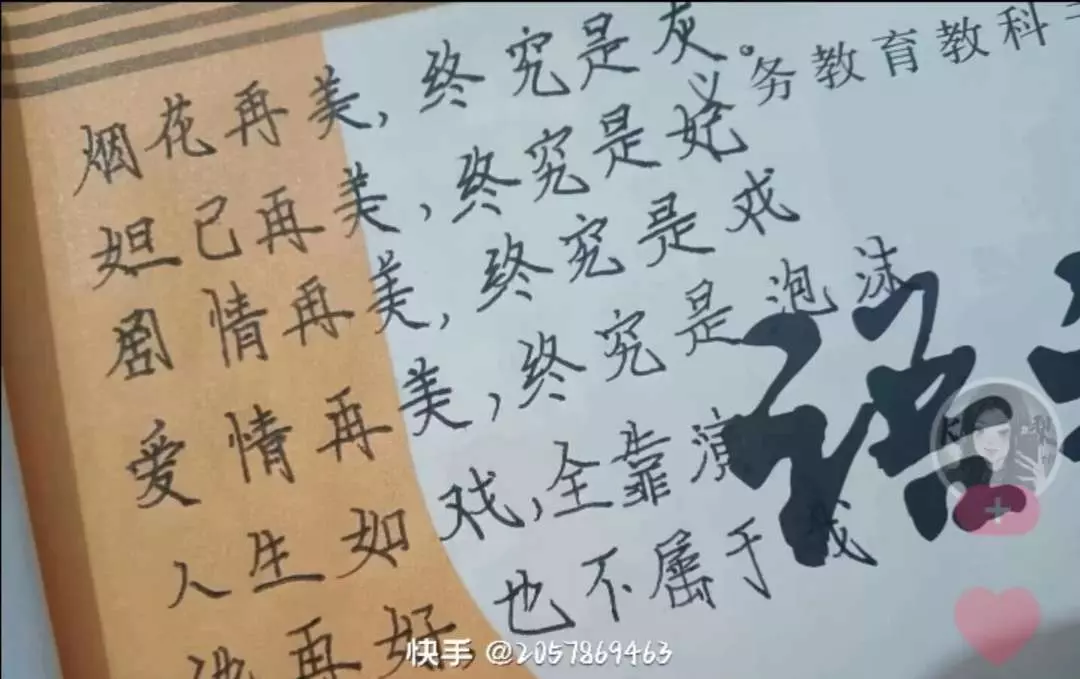 烟花再美,终究是灰。
妲己再美,终究是妃
剧情再美,终究是戏
爱情再美,终究是泡沫
人生如戏,全靠演
她再好 也不属于我
义务教育教科
语
快手 @2057869463